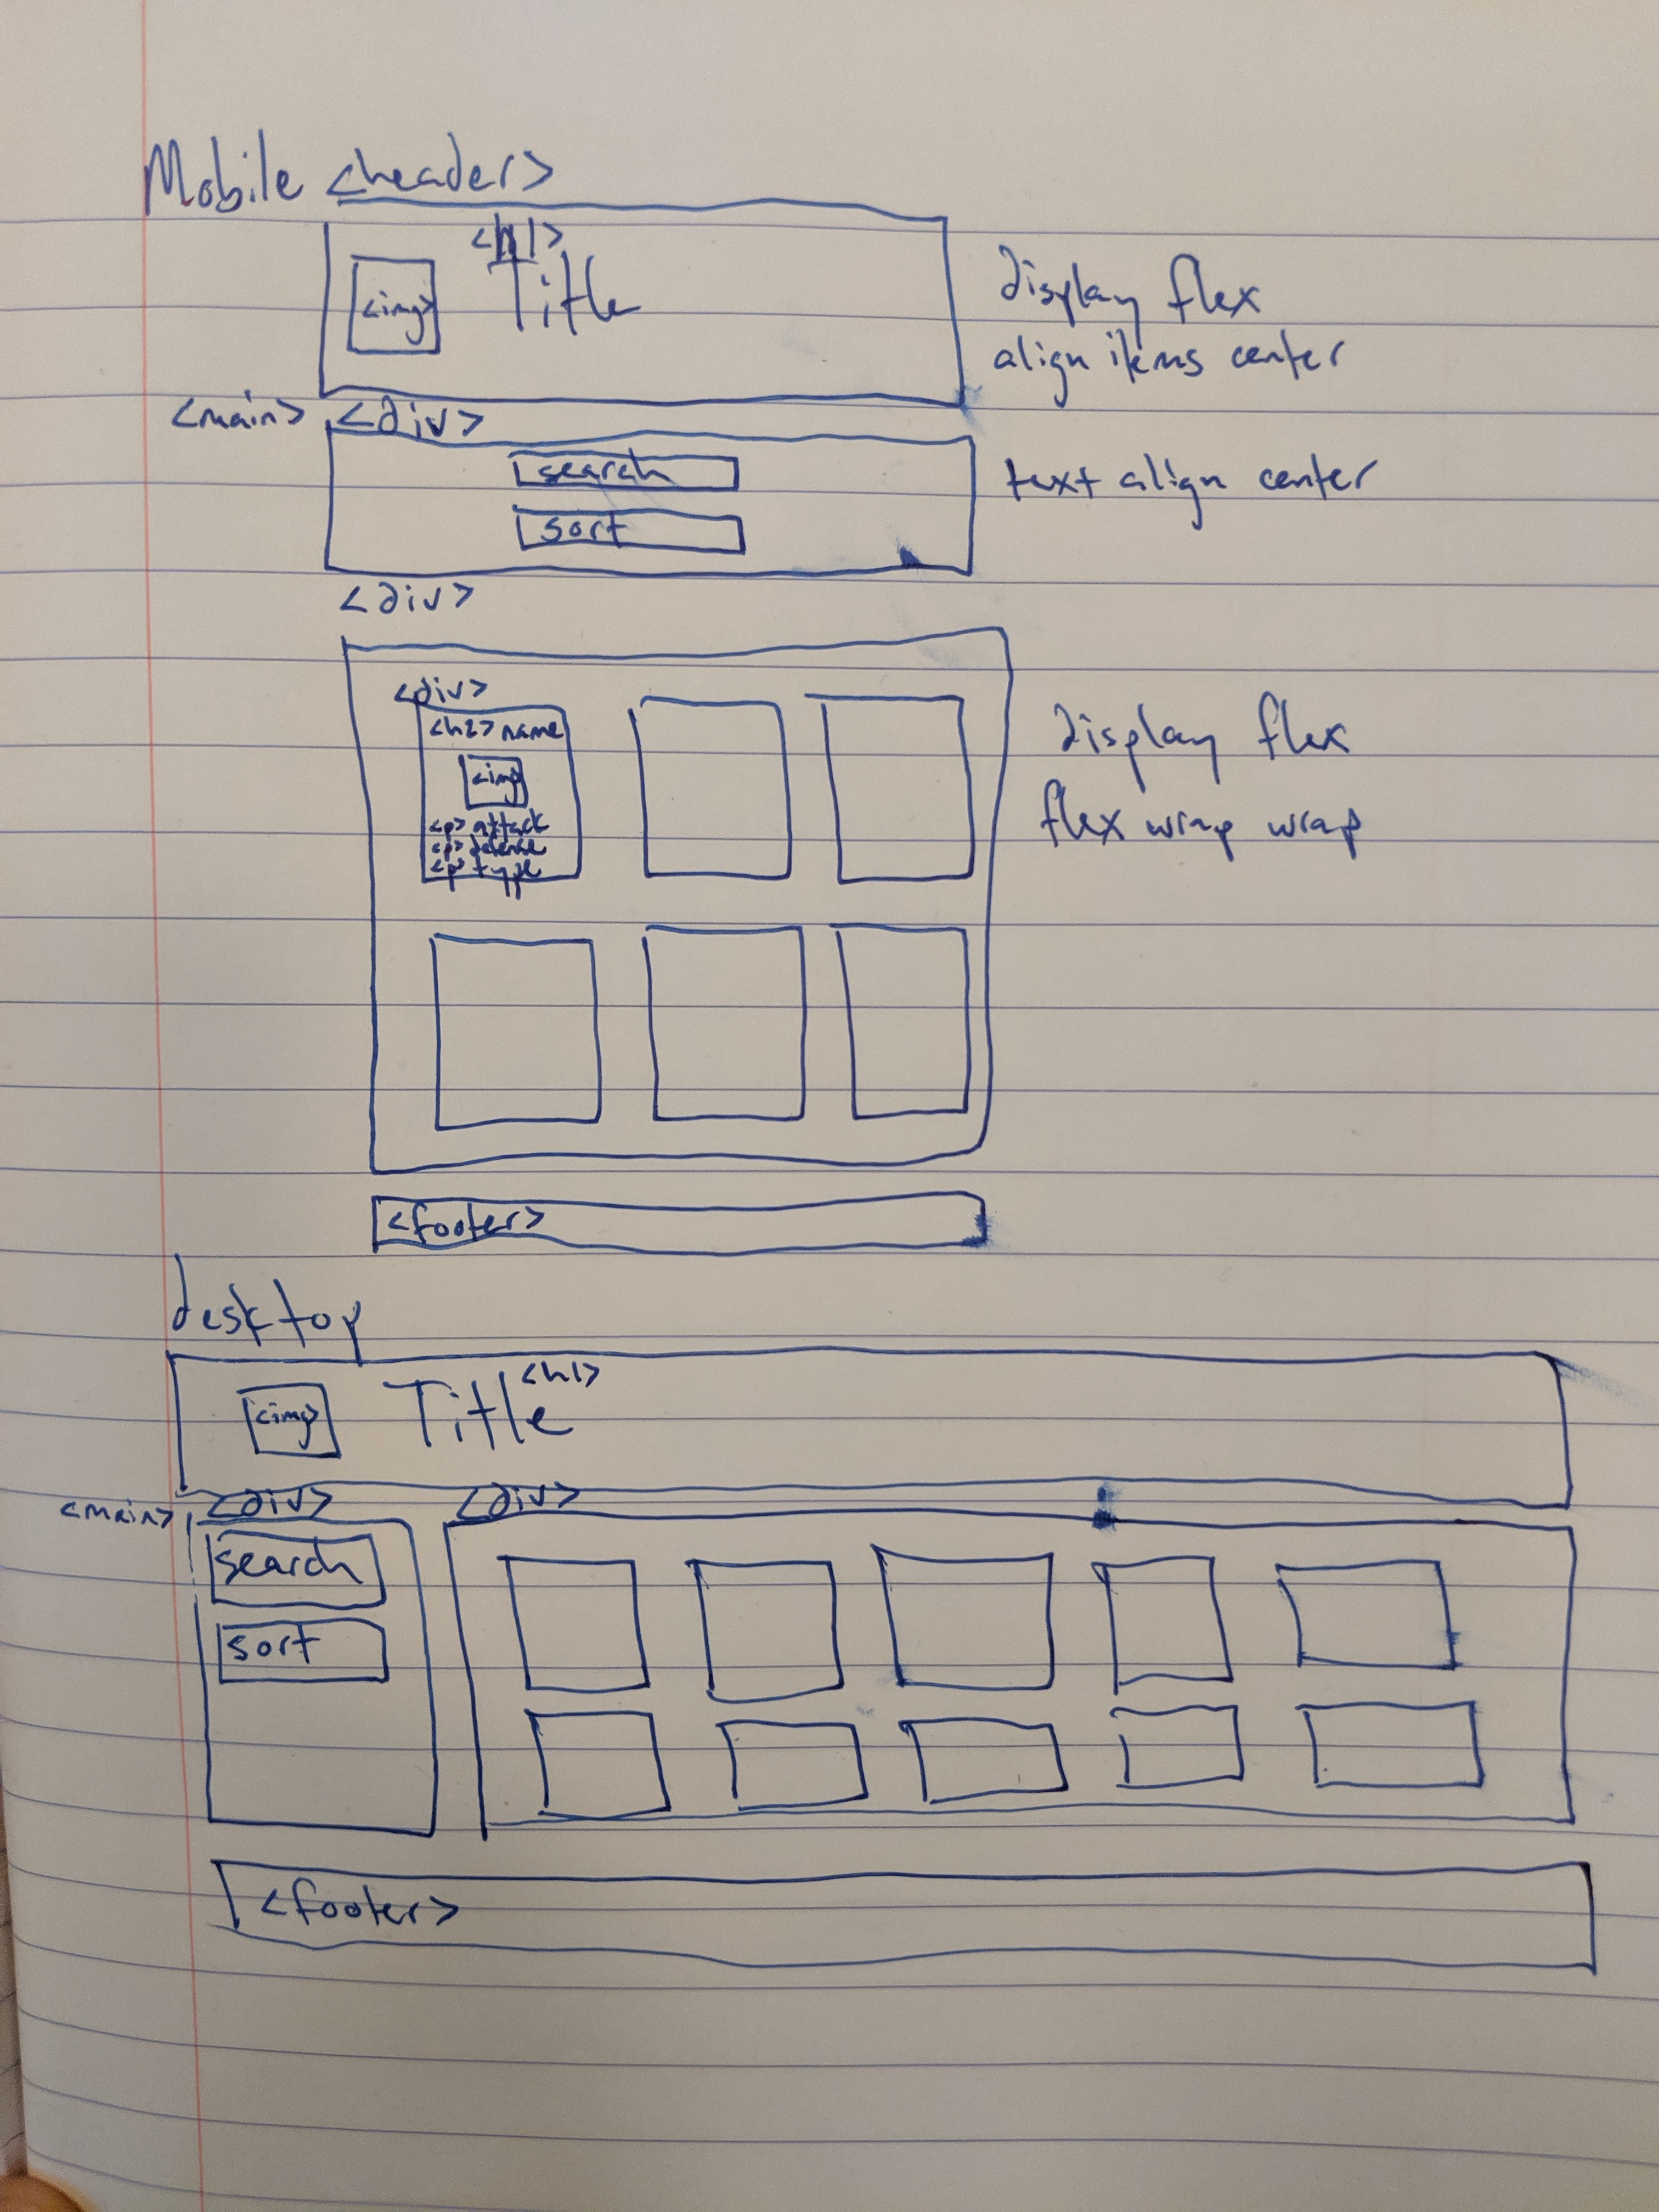 Mobile <header>
<h1>
<img> Title
display flex
align items center
<main> <div>
search
sort
text align center
<div>
<div>
<h2> name
<img>
<p> attack
<p> defense
<p> type
display flex
flex wrap wrap
<footer>
desktop
<img> Title <h1>
<main> <div> <div>
search
sort
<footer>